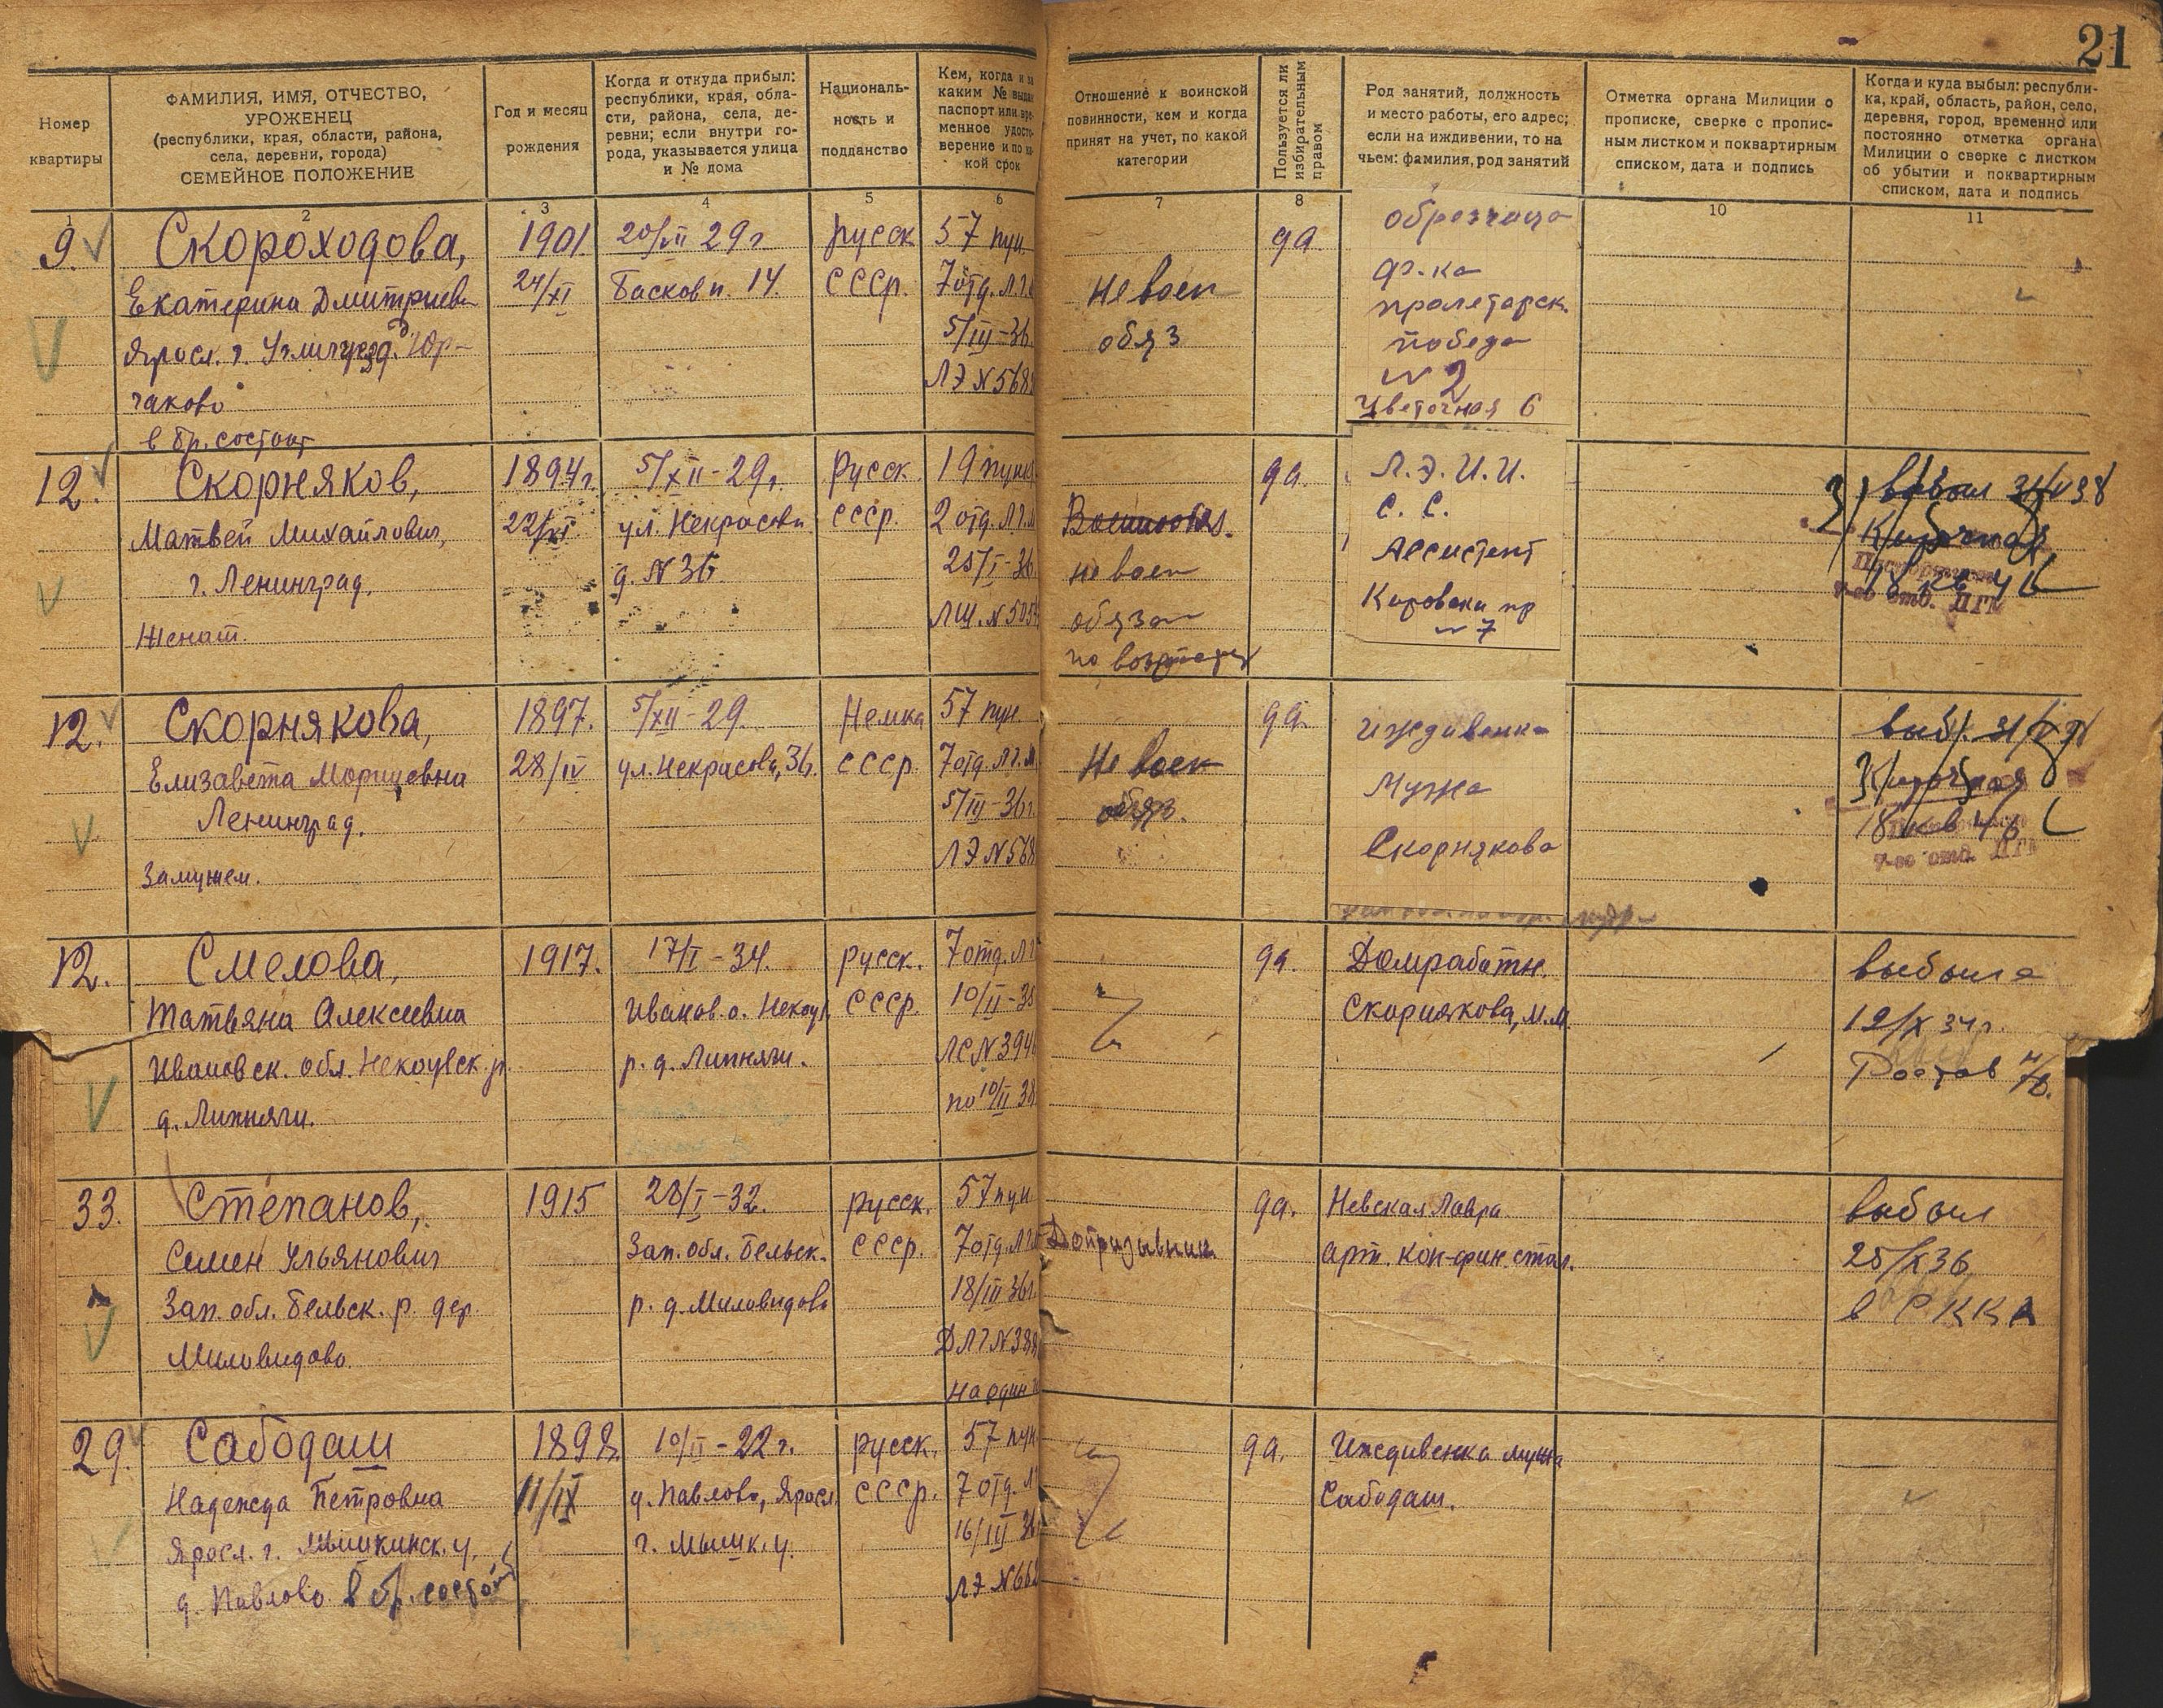 21
Номер
квартиры
ФАМИЛИЯ, ИМЯ, ОТЧЕСТВО,
УРОЖЕНЕЦ
(республики, края, области, района,
села, деревни, города)
СЕМЕЙНОЕ ПОЛОЖЕНИЕ
Год и месяц
рождения
Когда и откуда прибыл:
республики, края, обла-
сти, района, села, де-
ревни; если внутри го-
рода, указывается улица
и № дома
Националь-
ность и
подданство
Кем, когда и за
каким № выдан
паспорт или вре-
менное удосто-
верение и по ка-
кой срок
Отношение к воинской
повинности, кем и когда
принят на учет, по какой
категории
Пользуется ли
избирательным
правом
Род занятий, должность
и место работы, его адрес;
если на иждивении, то на
чьем: фамилия, род занятий
Отметка органа Милиции о
прописке, сверке с пропис-
ным листком и поквартирным
списком, дата и подпись
Когда и куда выбыл: республи-
ка, край, область, район, село,
деревня, город, временно или
постоянно отметка органа
Милиции о сверке с листком
об убытии и поквартирным
списком, дата и подпись
1 2 3 4 5 6 7 8 10 11
9.
Скороходова,
Екатерина Дмитриевн
Яросл. г. Углич
чаково
в бр. состоит
1901
24/XI
20/VII 29 г
Басков п. 14.
русск
СССР.
57 пун.
7 отд. Л.г.
5/III-36
ЛЭ N 568
Не воен
обяз
да.
ф-ка
пролетарск.
победа
№ 2
Цветочная 6
12.
Скорняков,
Матвей Михайлович,
г. Ленинград.
Женат.
1894 г.
22/XI.
5/XII-29 г.
ул. Некрасова
д. N 36
Русск.
СССР.
19 пункт
2 отд. Л.г.м
25/I-36
ЛШ. N 505
Военнообяз.
не воен
обязан
по возраст
да.
Л.Э.И.И.
С. С.
Ассистент
Кировски пр
№ 7
выбыл 31/V 38
Кирочная
18 кв 46
7-го отд. ЛГМ
12.
Скорнякова,
Елизавета Морицевна
Ленинград.
Замужем.
1897.
28/IV
5/XII-29.
ул. Некрасова, 36.
Немка
СССР.
57 пун
7 отд. Л.г.м.
5/III-36 г.
ЛЭ N 568
Не воен
обяз.
да.
иждивенка
Мужа
Скорнякова
выб. 31/V 38
Кирочная
18 кв 46
7-го отд. ЛГМ
12.
Смелова,
Татьяна Алексеевна
Ивановск. обл. Некоузск. р.
д. Липняги.
1917.
17/I-34.
Иванов. о. Некоуз.
р. д. Липняги.
русск.
СССР.
7 отд. Л г
10/II-35
ЛС N 394
по 10/II 38
да.
Домработн.
Скорнякова, М.М.
выбыла
12/X 34 г.
Ростов
33.
Степанов,
Семен Ульянович
Зап. обл. Бельск. р. дер.
Миловидово.
1915
28/I-32.
Зап. обл. Бельск.
р. д. Миловидово
русск.
СССР.
57 пун
7 отд. Л г
18/III 36 г.
ДЛГ N 388
на один г
Допризывник
да.
Невская Лавра
арт.
выбыл
25/X 36
в РККА
29.
Сабодаш
Надежда Петровна
Яросл. г. Мышкинск. у.
д. Павлово в бр. состоит
1898.
11/IX
10/II-22 г.
д. Павлово, Яросл
г. Мышк. у.
русск.
СССР.
57 пун
7 отд. Л
16/III 36
ЛЭ N 662
да.
Иждивенка мужа
Сабодаш.